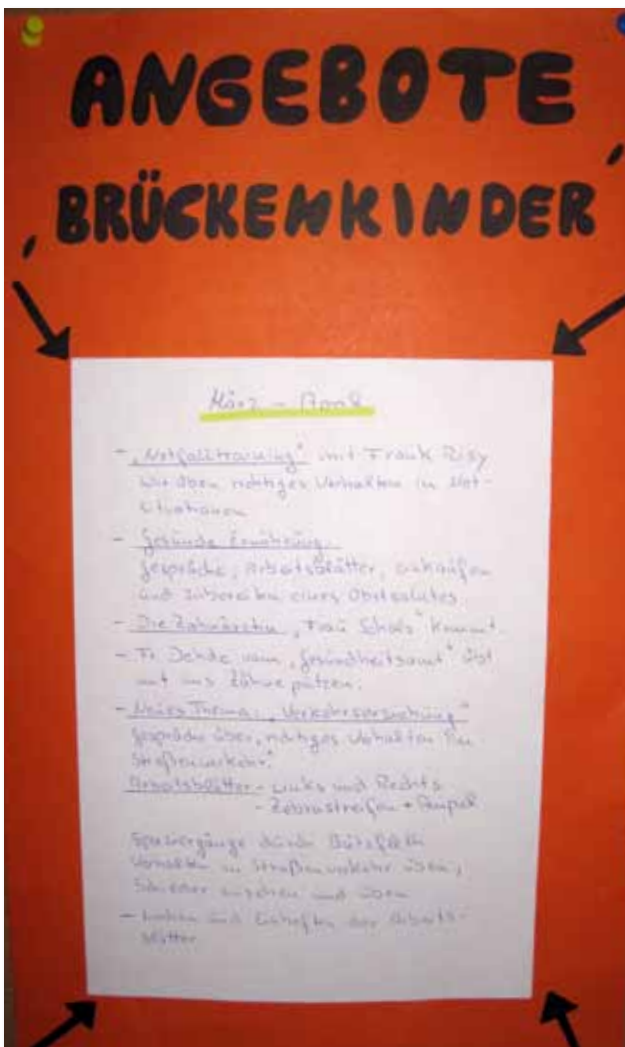 ANGEBOTE
, BRÜCKENKINDER '
März -
- „Notfalltraining" mit Frank
Wir üben richtiges Verhalten in Not-
situationen
- Gesunde Ernährung:
Gespräche, Arbeitsblätter, einkaufen
und zubereiten eines Obstsalates.
- Die Zahnärztin „Frau Scholz" kommt.
- Fr. vom „Gesundheitsamt" übt
mit uns Zähne putzen.
- Neues Thema: „Verkehrserziehung"
Gespräche über, richtiges Verhalten im
Straßenverkehr."
Arbeitsblätter - Links und Rechts
- Zebrastreifen + Ampel
Spaziergänge durch
Verhalten im Straßenverkehr üben,
Schilder und üben
- und Einheften der Arbeits-
blätter